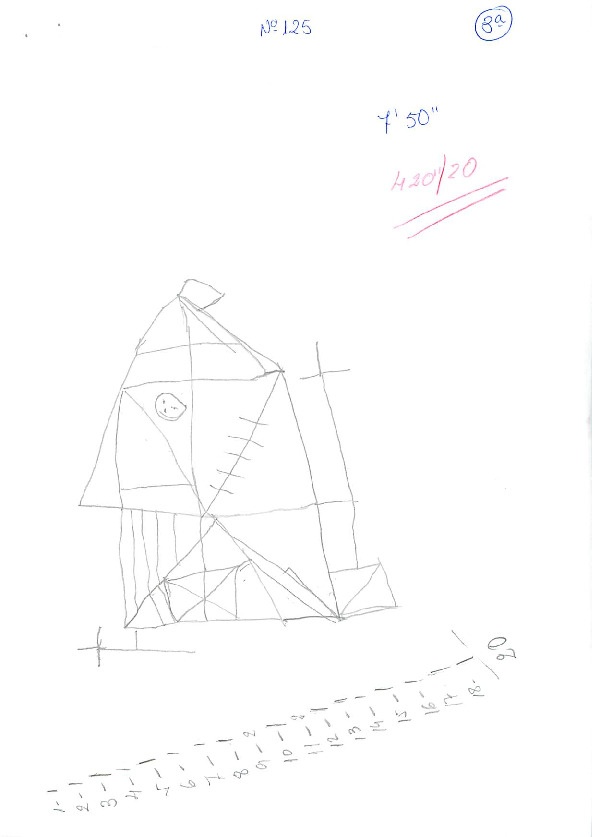 Nº 125
8ª
7' 50"
420"/20
2 2
1 2 3 4 5 6 7 8 9 10 11 12 13 14 15 16 17 18
20